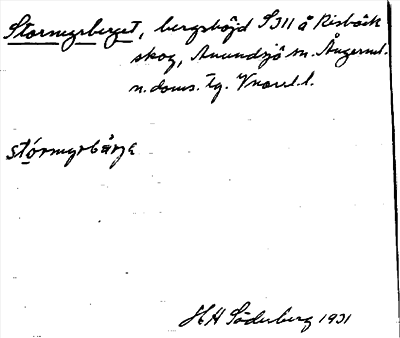 Stormyrberget, bergshöjd S311 å Risbäck
skog, Anundsjö sn. Ångerml.
n. doms. Tg.
stórmyrbärje
HH Söderberg 1931